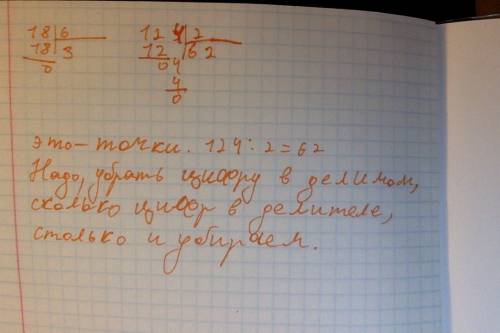 18 6 124 2
18 3 12 62
0 04
4
0
это-точки. 124:2=62
Надо, убрать цифру в делимом,
сколько цифр в делителе,
столько и убираем.